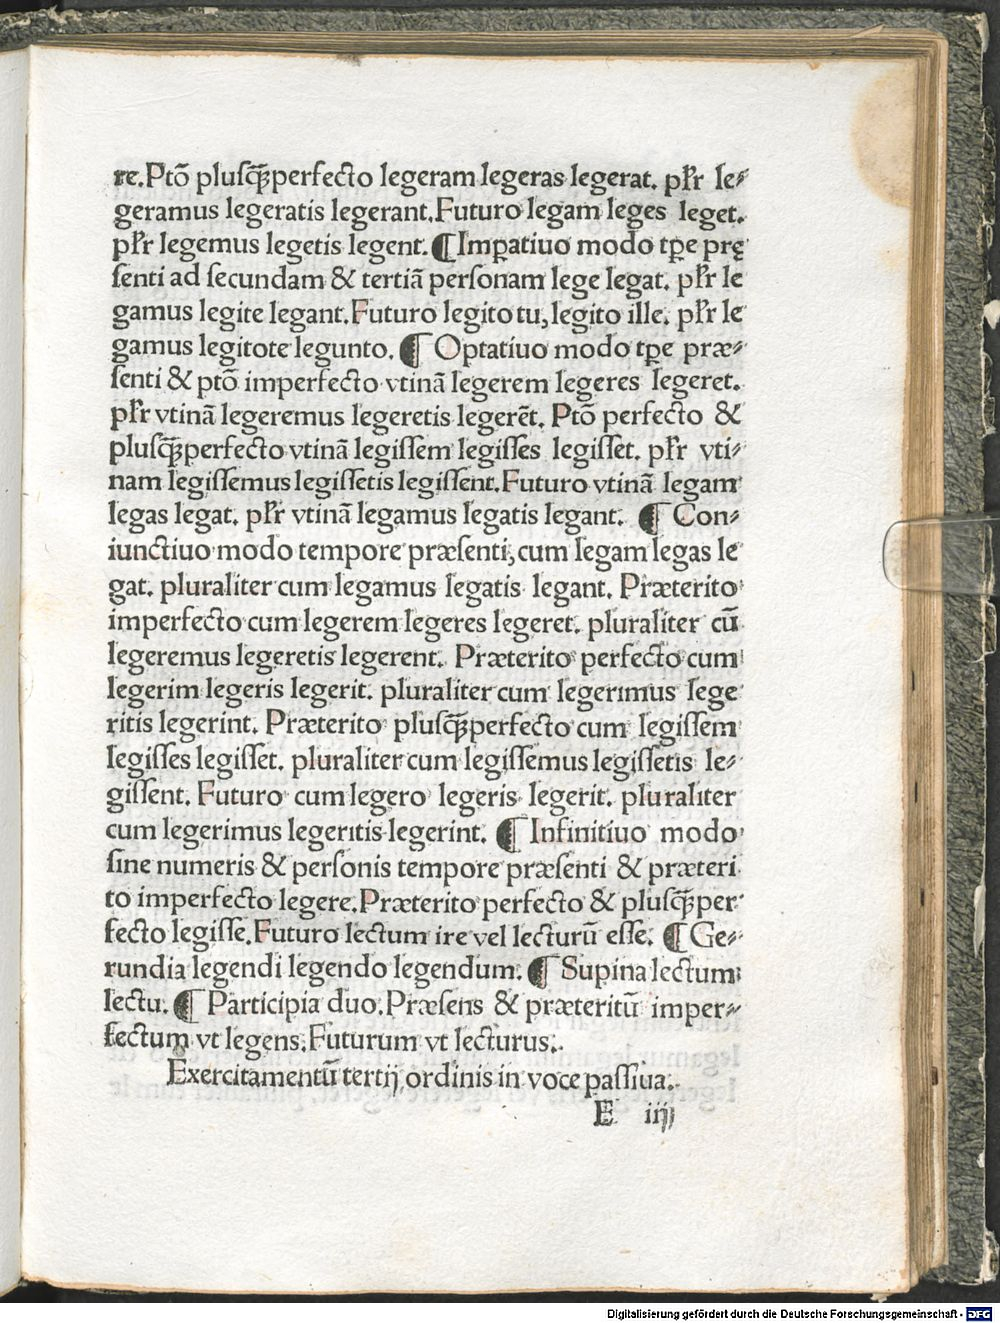 re.Ptõ plusq̃ꝫperfecto legeram legeras legerat. pl̃r le⸗
geramus legeratis legerant.Futuro legam leges leget.
pl̃r legemus legetis legent.¶Imꝑatiuo modo tꝑe prę
senti ad secundam & tertiã personam lege legat. pl̃r le
gamus legite legant.Futuro legito tu,legito ille. pl̃r le
gamus legitote legunto. ¶ Optatiuo modo tꝑe præ⸗
senti & ptõ imperfecto vtinã legerem legeres legeret.
pl̃r vtinã legeremus legeretis legerẽt. Ptõ perfecto &
plusq̃ꝫperfecto vtinã legissem legisses legisset. pl̃r vti⸗
nam legissemus legissetis legissent.Futuro vtinã legam
legas legat. pl̃r vtinã legamus legatis legant. ¶ Con⸗
iunctiuo modo tempore præsenti,cum legam legas le
gat. pluraliter cum legamus legatis legant. Præterito
imperfecto cum legerem legeres legeret. pluraliter cũ
legeremus legeretis legerent. Præterito perfecto cum
legerim legeris legerit. pluraliter cum legerimus lege
ritis legerint. Præterito plusq̃ꝫperfecto cum legissem
legisses legisset. pluraliter cum legissemus legissetis le⸗
gissent. Futuro cum legero legeris legerit. pluraliter
cum legerimus legeritis legerint. ¶ Infinitiuo modo
sine numeris & personis tempore præsenti & præteri
to imperfecto legere.Præterito perfecto & plusq̃ꝫper
fecto legisse.Futuro lectum ire vel lecturũ esse. ¶ Ge⸗
rundia legendi legendo legendum. ¶ Supina lectum
lectu. ¶ Participia duo.Præsens & præteritũ imper⸗
fectum vt legens.Futurum vt lecturus.
Exercitamentũ tertij ordinis in voce passiua.
E iiij
Digitalisierung gefördert durch die Deutsche Forschungsgemeinschaft - DFG